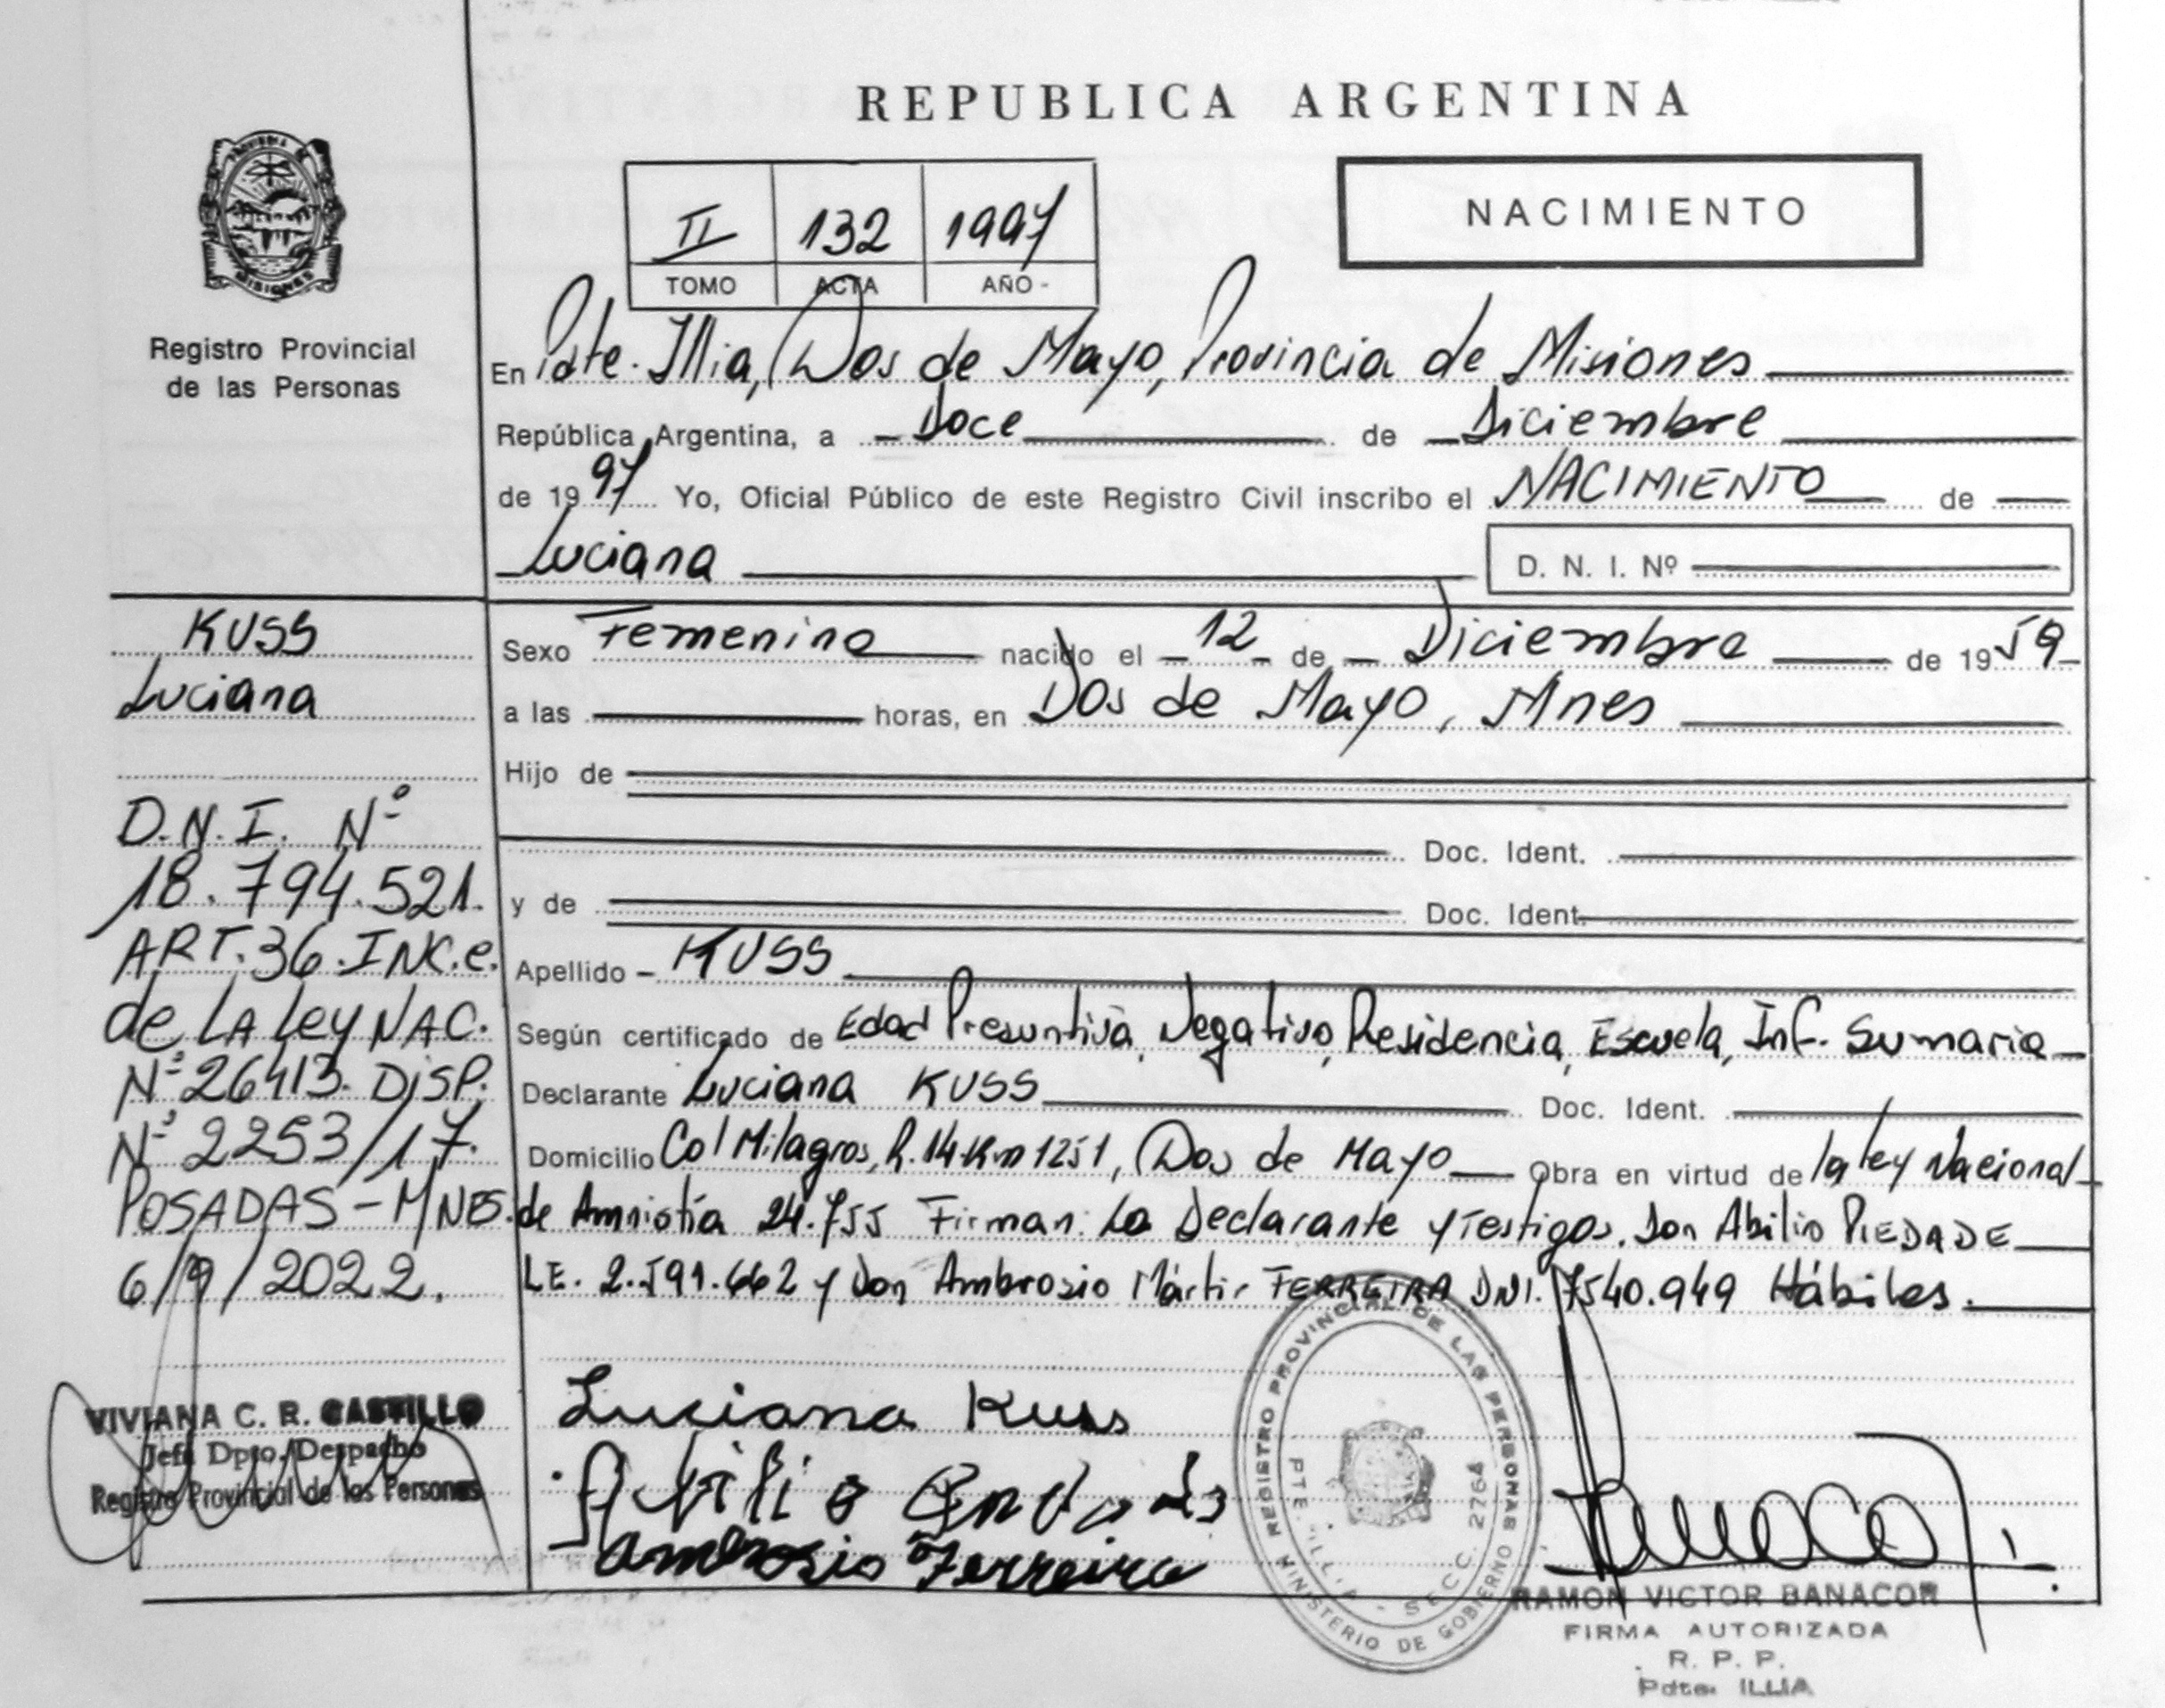 REPUBLICA ARGENTINA
PROVINCIA DE
MISIONES
Registro Provincial
de las Personas
II 132 1997
TOMO ACTA AÑO -
NACIMIENTO
En Pdte. Illia, Dos de Mayo, Provincia de Misiones
República Argentina, a Doce de Diciembre
de 1997 Yo, Oficial Público de este Registro Civil inscribo el NACIMIENTO de
Luciana
D. N. I. Nº
KUSS
Luciana
D.N.I. Nº
18.794.521.
ART.36.INC.e.
de LA Ley NAC.
Nº 26413. DISP.
Nº 2253/17.
POSADAS - MNES.
6/9/2022.
VIVIANA C. R. CASTILLO
Jefa Dpto. Despacho
Registro Provincial de las Personas
Sexo Femenino nacido el 12 de Diciembre de 1959
a las horas, en Dos de Mayo, Mnes
Hijo de
Doc. Ident.
y de Doc. Ident.
Apellido - KUSS
Según certificado de Edad Presuntiva, Negativo, Residencia, Escuela, Inf. Sumaria
Declarante Luciana KUSS Doc. Ident.
Domicilio Col Milagros, R. 14 Km 1251, Dos de Mayo Obra en virtud de la ley Nacional
de Amnistía 24.755 Firman: La Declarante y Testigos. Don Abilio PIEDADE
LE. 2.591.662 y Don Ambrosio Mártir FERREIRA DNI. 7540.949 Hábiles.
Luciana Kuss
Abilio
Ambrosio Ferreira
REGISTRO PROVINCIAL DE LAS PERSONAS
MINISTERIO DE GOBIERNO
PTE. ILLIA - SECC. 2764
RAMON VICTOR BANACOR
FIRMA AUTORIZADA
R. P. P.
Pdte. ILLIA